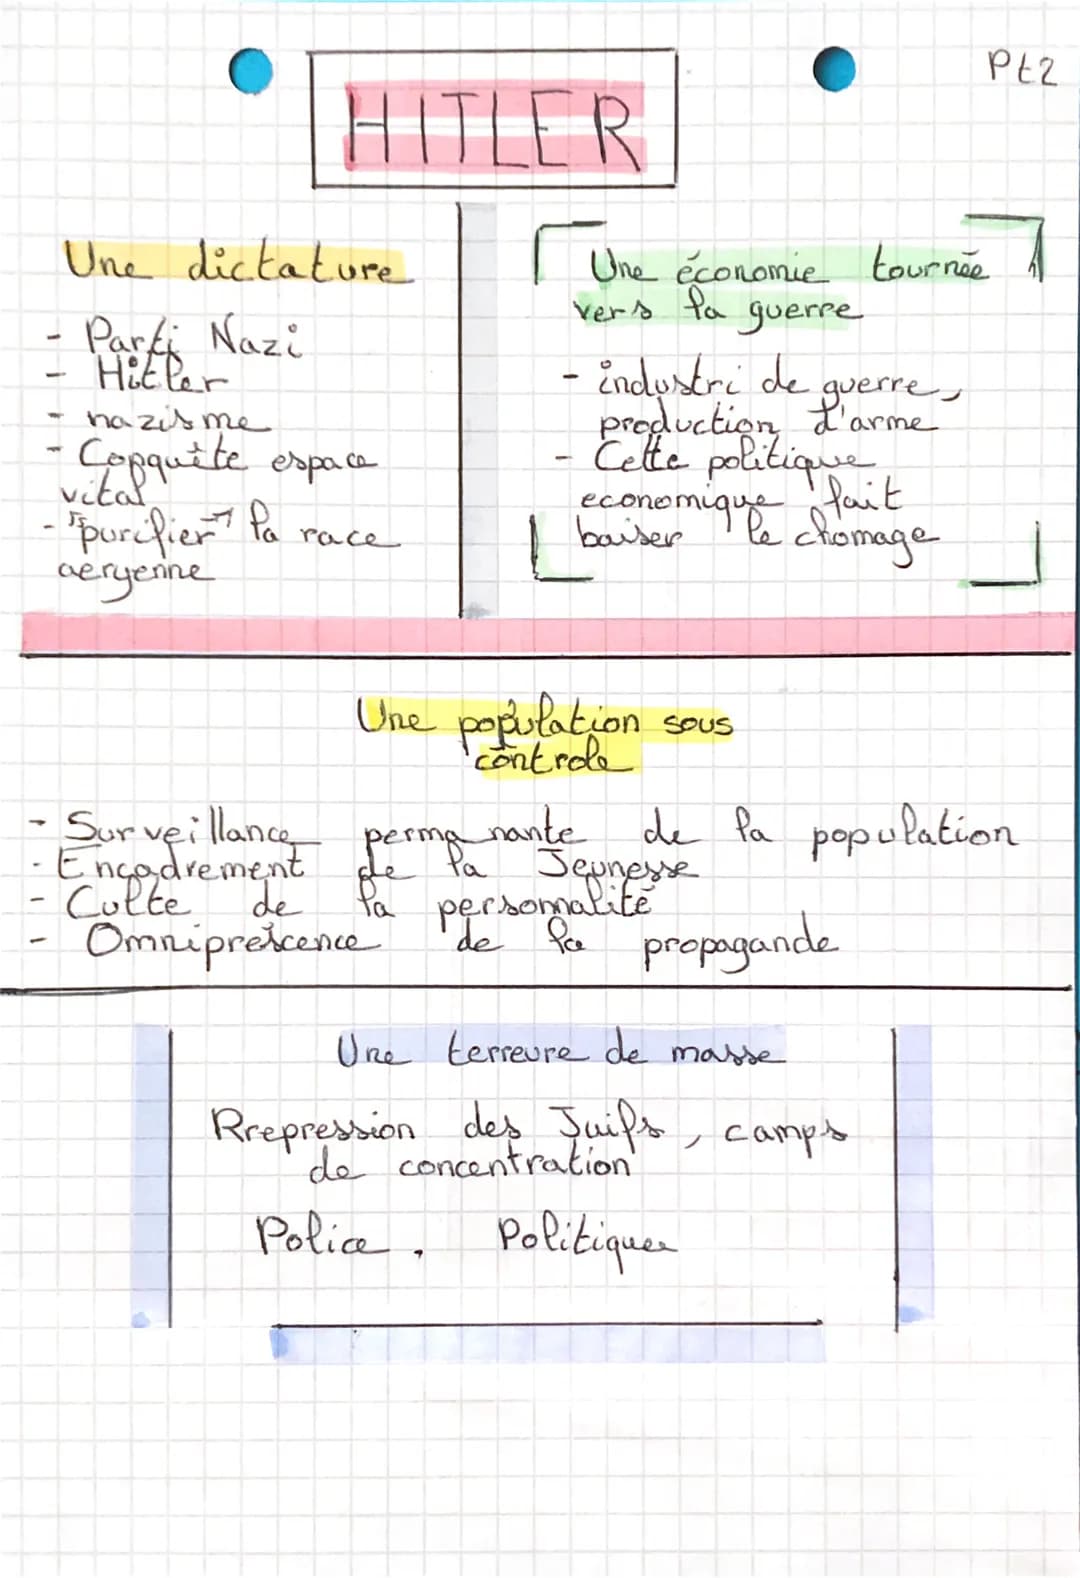 Pt2
HITLER
Une dictature
- Parti Nazi
- Hitler
- nazisme
- Conquête espace
vital
- "purifier" la race
aeryenne
Une économie tournée
vers la guerre
- industri de guerre,
production d'arme
- Cette politique
economique fait
baiser le chomage
Une population sous
controle
- Surveillance permanante de la population
- Encadrement de la Jeunesse
- Culte de la personnalité
- Omniprescence de la propagande
Une terreure de masse
Rrepression des Juifs, camps
de concentration
Police. Politiques